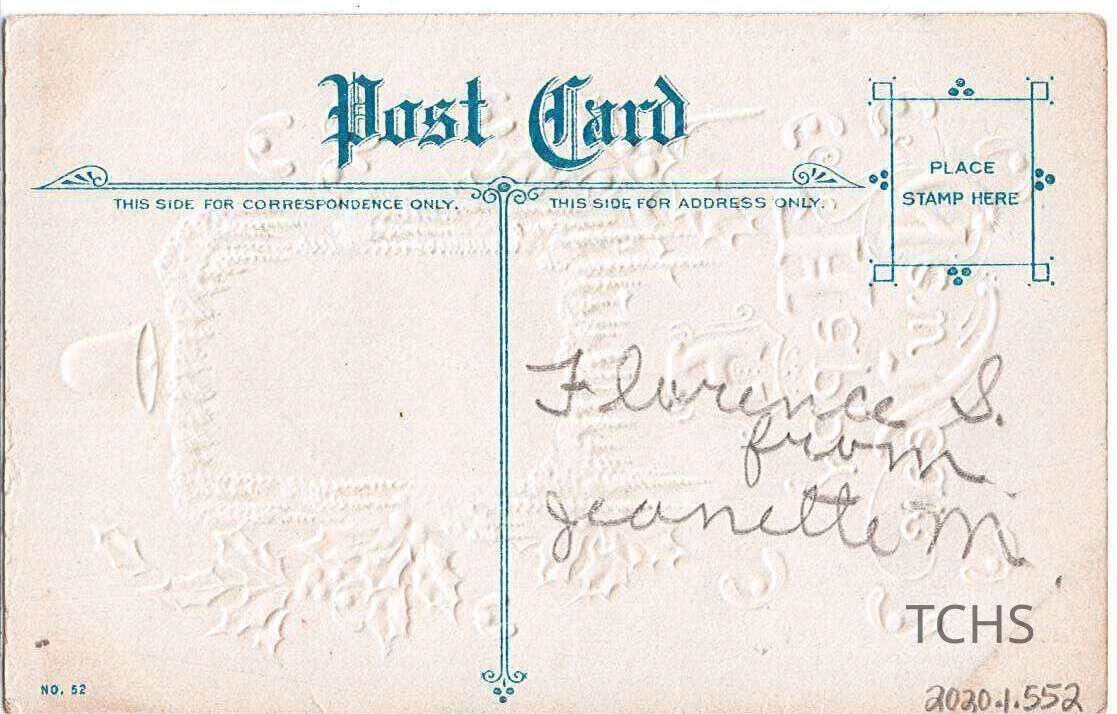 Post Card
THIS SIDE FOR CORRESPONDENCE ONLY.
THIS SIDE FOR ADDRESS ONLY.
PLACE
STAMP HERE
Florence S.
from
Jeanette M.
TCHS
NO. 52
2020.1.552